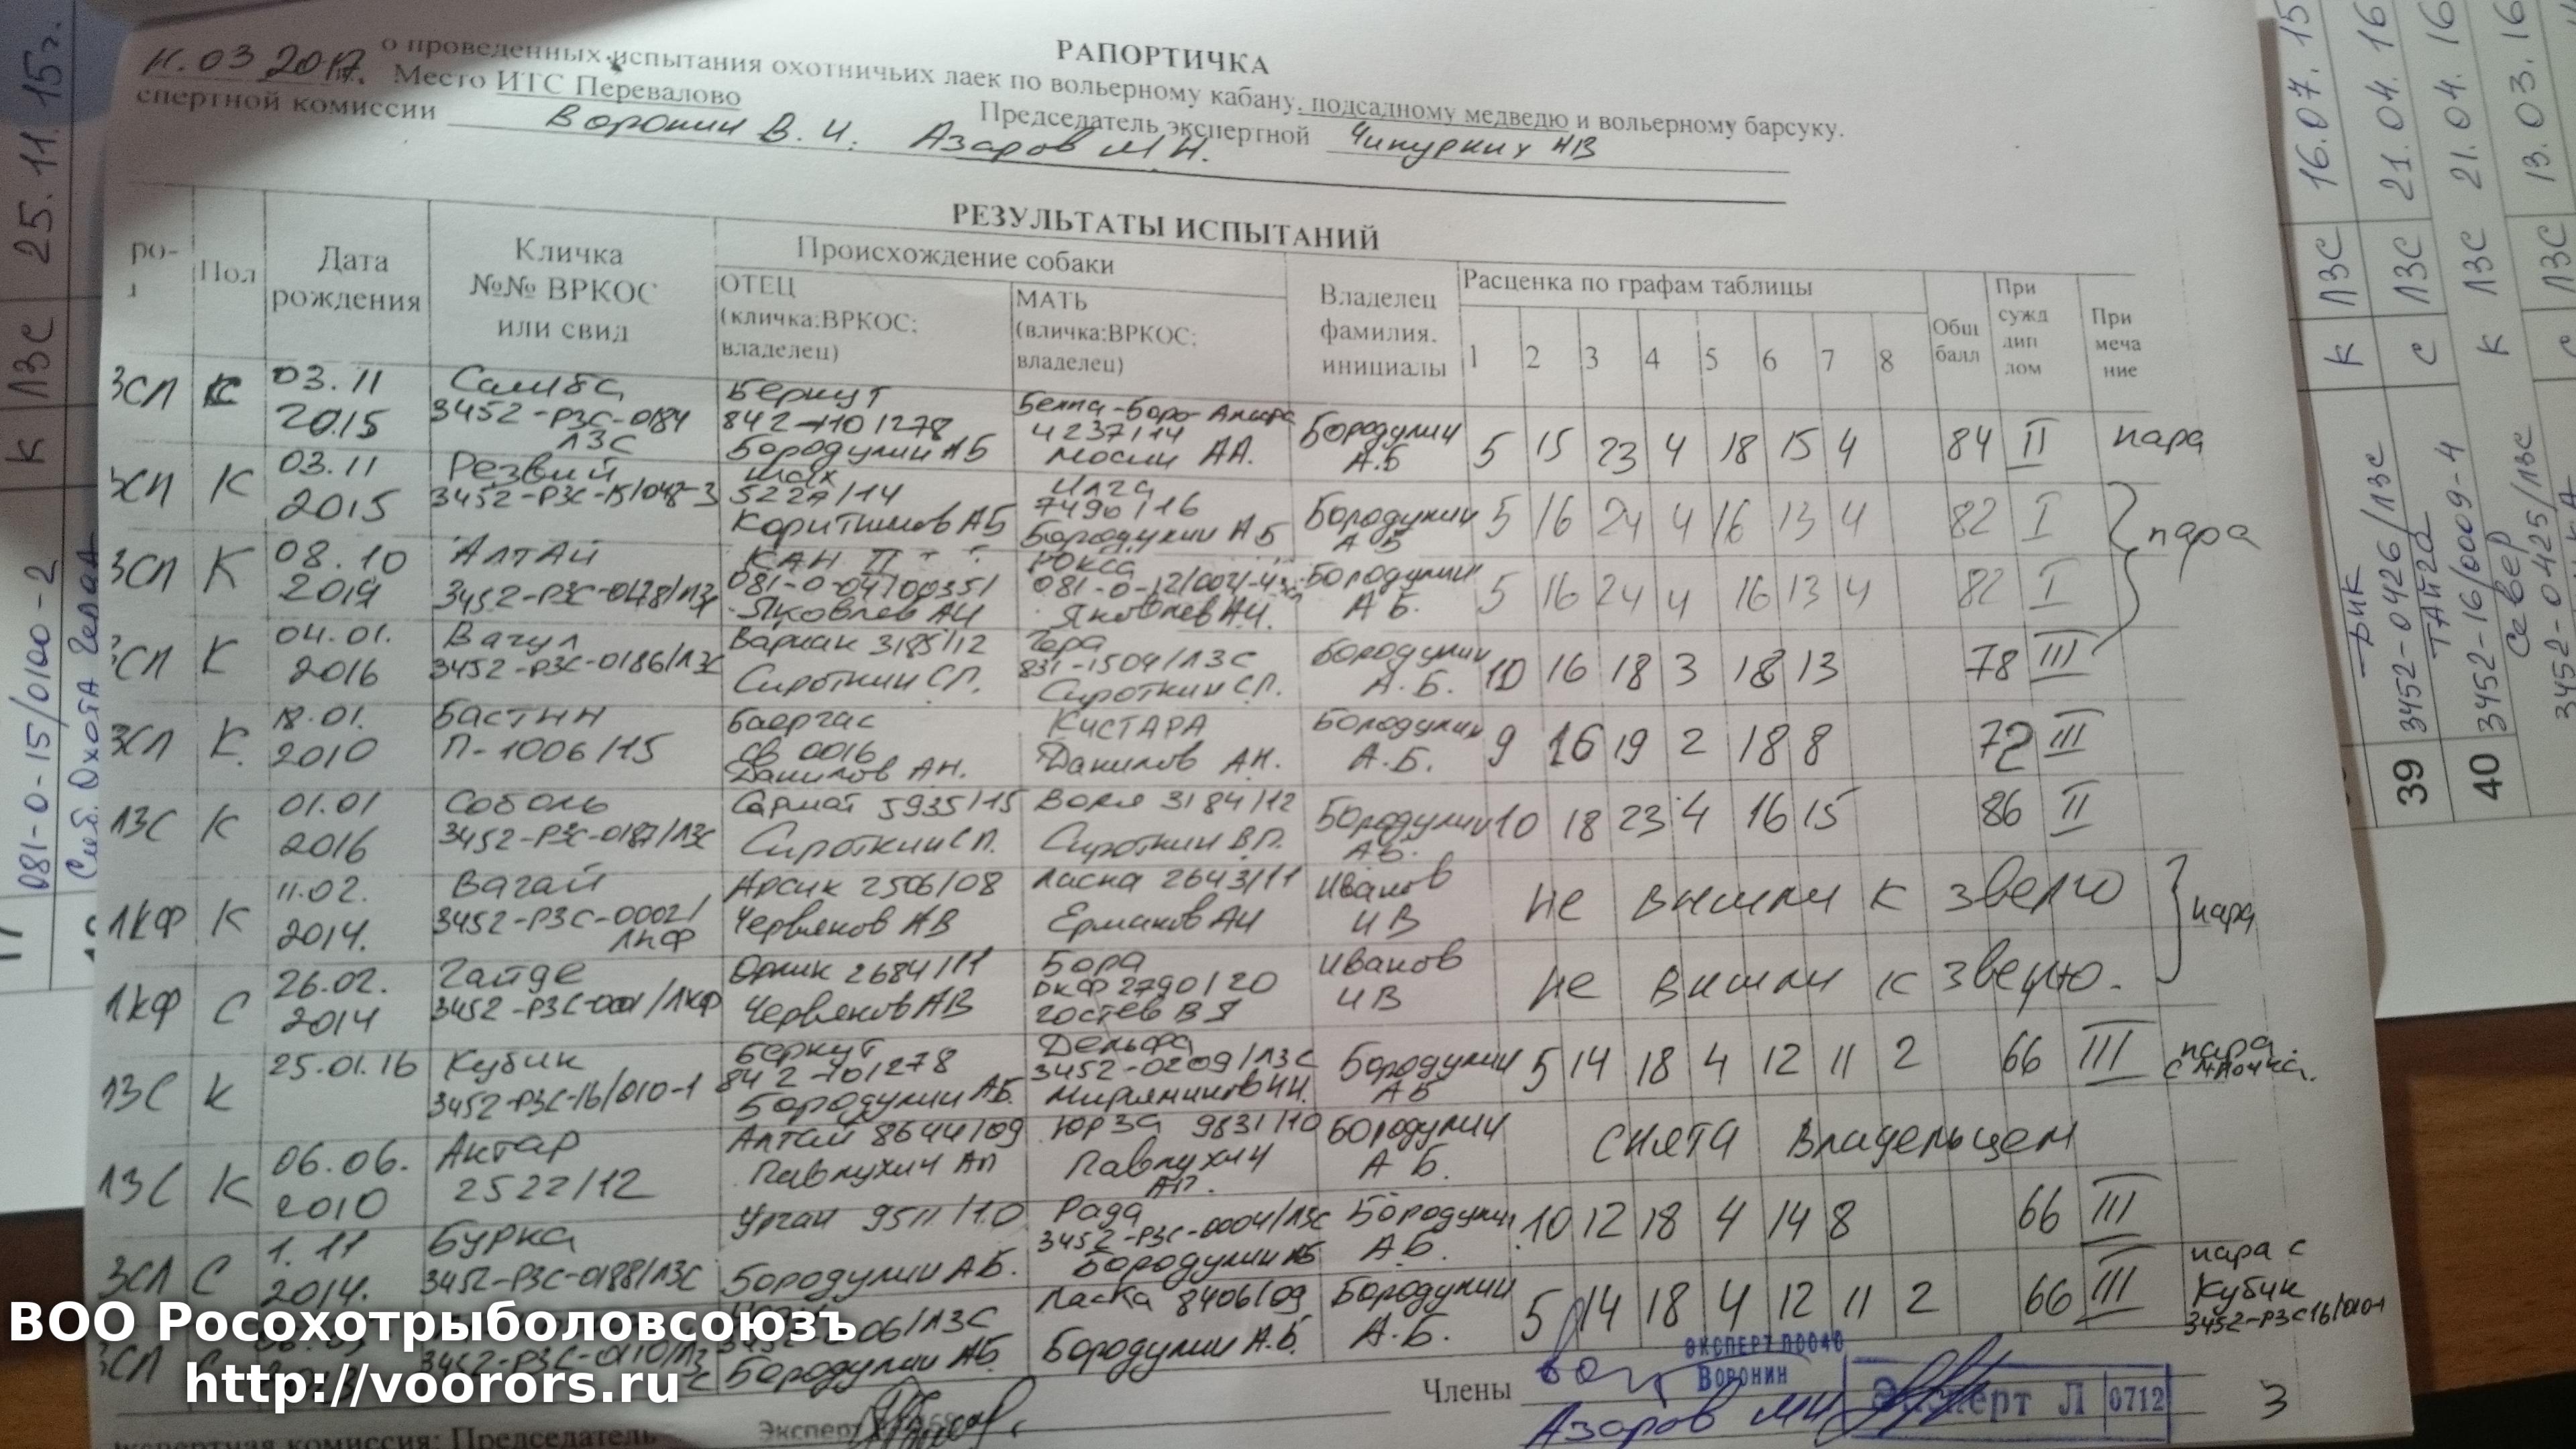 РАПОРТИЧКА
о проведенных испытания охотничьих лаек по вольерному кабану, подсадному медведю и вольерному барсуку.
11.03 2017г. Место ИТС Перевалово Председатель экспертной Чикурких НВ
спертной комиссии Воронин В. И. Азаров М Н.
РЕЗУЛЬТАТЫ ИСПЫТАНИЙ
ро- Пол Дата рождения Кличка №№ ВРКОС или свид Происхождение собаки Владелец фамилия. инициалы Расценка по графам таблицы Общ балл При сужд дип лом При меча ние
ОТЕЦ (кличка:ВРКОС: владелец) МАТЬ (вличка:ВРКОС: владелец) 1 2 3 4 5 6 7 8
ЗСЛ К 03.11 2015 Самба 3452-РЗС-0184 ЛЗС Беркут 842-1101278 Бородулин АБ 4237/14 Мосин АА. Бородулин А.Б 5 15 23 4 18 15 4 84 II пара
ЗСЛ К 03.11 2015 Резвый 3452-РЗС-15/048-3 Шах 5227/14 Коритшов АБ Илга 7490/16 Бородулин А Б Бородулин А Б 5 16 24 4 16 13 4 82 I пара
ЗСЛ К 08.10 2014 Алтай 3452-РЗС-0178/ЛЗС КАН II 081-0-04/0035/ Яковлев АИ Рокса Яковлев А.И. Бородулин А Б. 5 16 24 4 16 13 4 82 I
ЗСЛ К 04.01. 2016 Вагул 3452-РЗС-0186/ЛЗС Варнак 3185/12 Сироткин С.П. Гера 831-1509/ЛЗС Сироткин С.П. Бородулин А.Б. 10 16 18 3 18 13 78 III
ЗСЛ К. 18.01. 2010 Бастин П-1006/15 Баергас св 0016 Данилов АН. КИСТАРА Данилов А.Н. Бородулин А.Б. 9 16 19 2 18 8 72 III
ЛЗС К 01.01 2016 Соболь 3452-РЗС-0187/ЛЗС Сармат 5935/15 Сироткин С П. Воля 3184/12 Сироткин В.П. Бородулин АБ. 10 18 23 4 16 15 86 II
ЛКФ К 11.02. 2014. Вагай 3452-РЗС-0002/ ЛКФ Арсик 2506/08 Червяков АВ Ласка 2643/11 Ермаков АИ Иванов И В Не вышли к зверю пара
ЛКФ С 26.02. 2014 Гайде 3452-РЗС-0001/ЛКФ Орлик 2684/11 Червяков АВ Бора РКФ 2790120 Гостев В Я Иванов И В Не вышли к зверю.
ЛЗС К 25.01.16 Кубик 3452-РЗС-16/010-1 Беркут 842-101278 Бородулин АБ. Дельфа 3452-0209/ЛЗС Бородулин АБ 5 14 18 4 12 11 2 66 III пара с
ЛЗС К 06.06. 2010 Актар 2522/12 Алтай 8644/09 Павлухин АП Юрза 9831/10 Павлухин АП. Бородулин А Б. Снята владельцем
ЗСЛ С 1. 11 2014. Бурка 3452-РЗС-0188/ЛЗС Урган 9511/10 Бородулин А.Б. Рада 3452-РЗС-0004/ЛЗС Бородулин АБ Бородулин А.Б. 10 12 18 4 14 8 66 III
ЗСЛ 3452-РЗС-0110/ЛЗС 06/ЛЗС Бородулин АБ Ласка 8406/09 Бородулин А.Б. Бородулин А.Б. 5 14 18 4 12 11 2 66 III пара с Кубик 3452-РЗС16/010-1
Члены
ЭКСПЕРТ П0040
Воронин
Азаров МН
Эксперт Л 0712
3
Эксперт
кспертная комиссия: Председатель
ВОО Росохотрыболовсоюзъ
http://voorors.ru
К ЛЗС 25.11.15г.
081-0-15/0100-2
К ЛЗС 16.07.15
39 3452-0426/ЛЗС С ЛЗС 21.04.16
ТАЙГА
40 3452-16/0009-4 К ЛЗС 21.04.16
Север
3452-0425/ЛЗС С ЛЗС 13.03.16